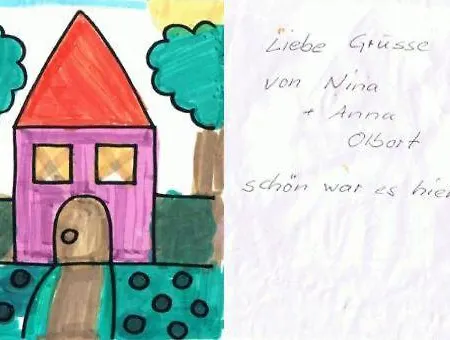 Liebe Grüsse
von Nina
+ Anna
Olbort
schön war es hier